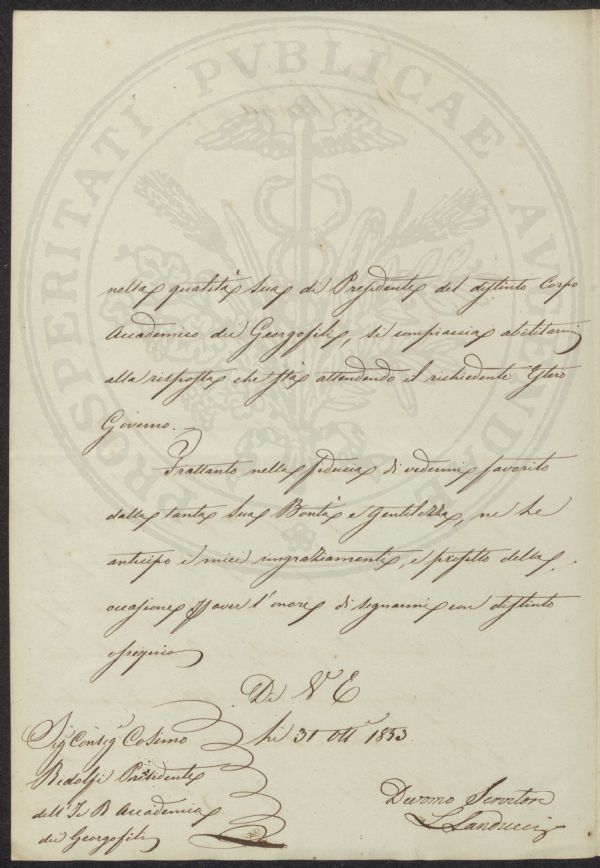 PROSPERITATI PVBLICAE AVGENDAE
nella qualità sua di Presidente del distinto Corpo
Accademico dei Georgofili, si compiaccia abilitarmi
alla risposta che sta attendendo il richiedente Estero
Governo.
Frattanto nella fiducia di vedermi favorito
dalla tanta sua Bontà e Gentilezza, ne Le
anticipo i miei ringraziamenti, e profitto della
occasione p aver l'onore di segnarmi con distinto
ossequio
Di V E
Sig Consigr Cosimo
li 31 Ottr 1853.
Ridolfi Presidente
dell'I e R Accademia
dei Georgofili
Devomo Servitore
L Landucci